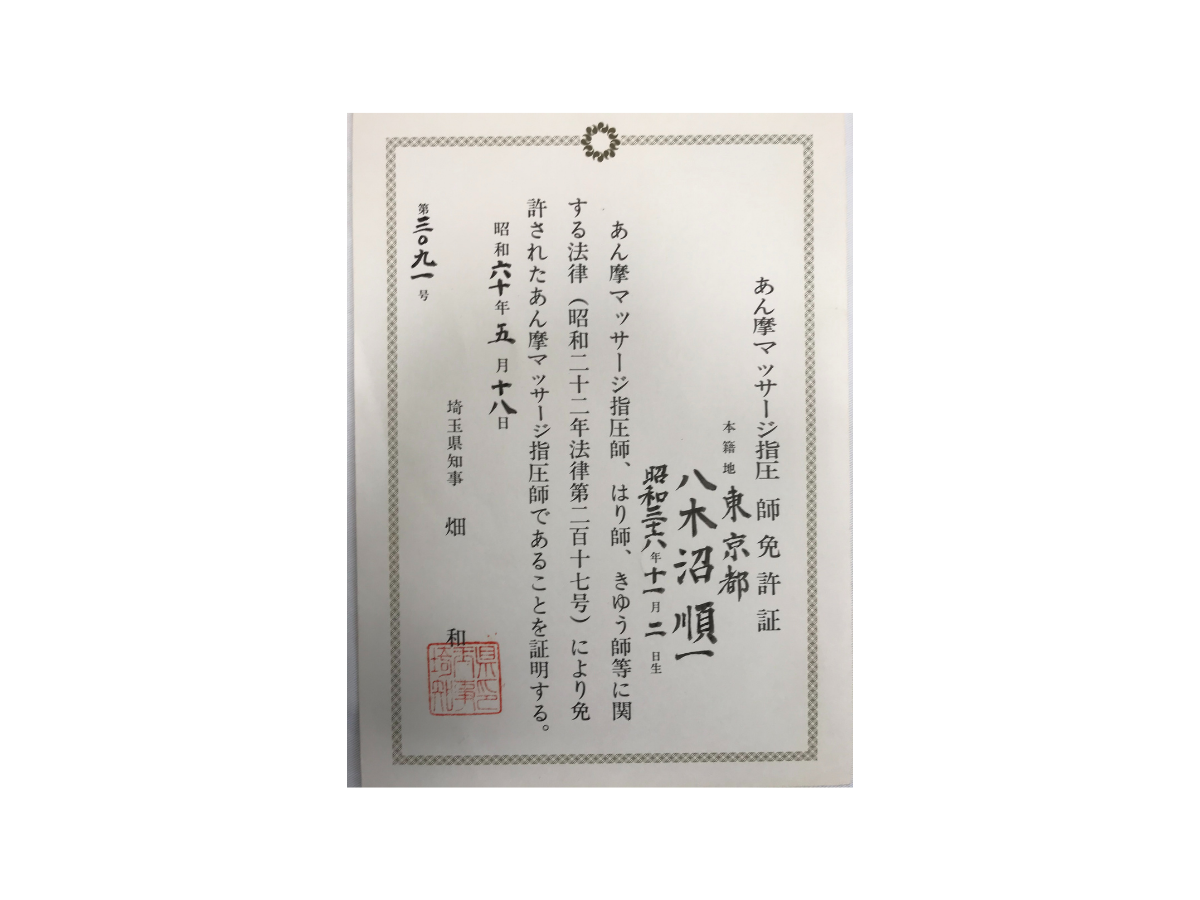 あん摩マッサージ指圧師免許証
本籍地 東京都
八木沼順一
昭和三十六年十一月二日生
あん摩マッサージ指圧師、はり師、きゆう師等に関
する法律(昭和二十二年法律第二百十七号)により免
許されたあん摩マッサージ指圧師であることを証明する。
昭和六十年五月十八日
埼玉県知事 畑 和
第三〇九一号